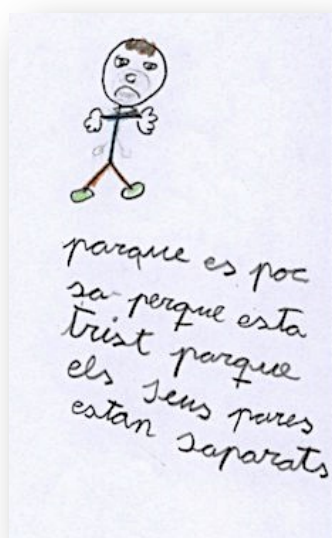 parque es poc
sa perque esta
trist parque
els seus pares
estan saparats